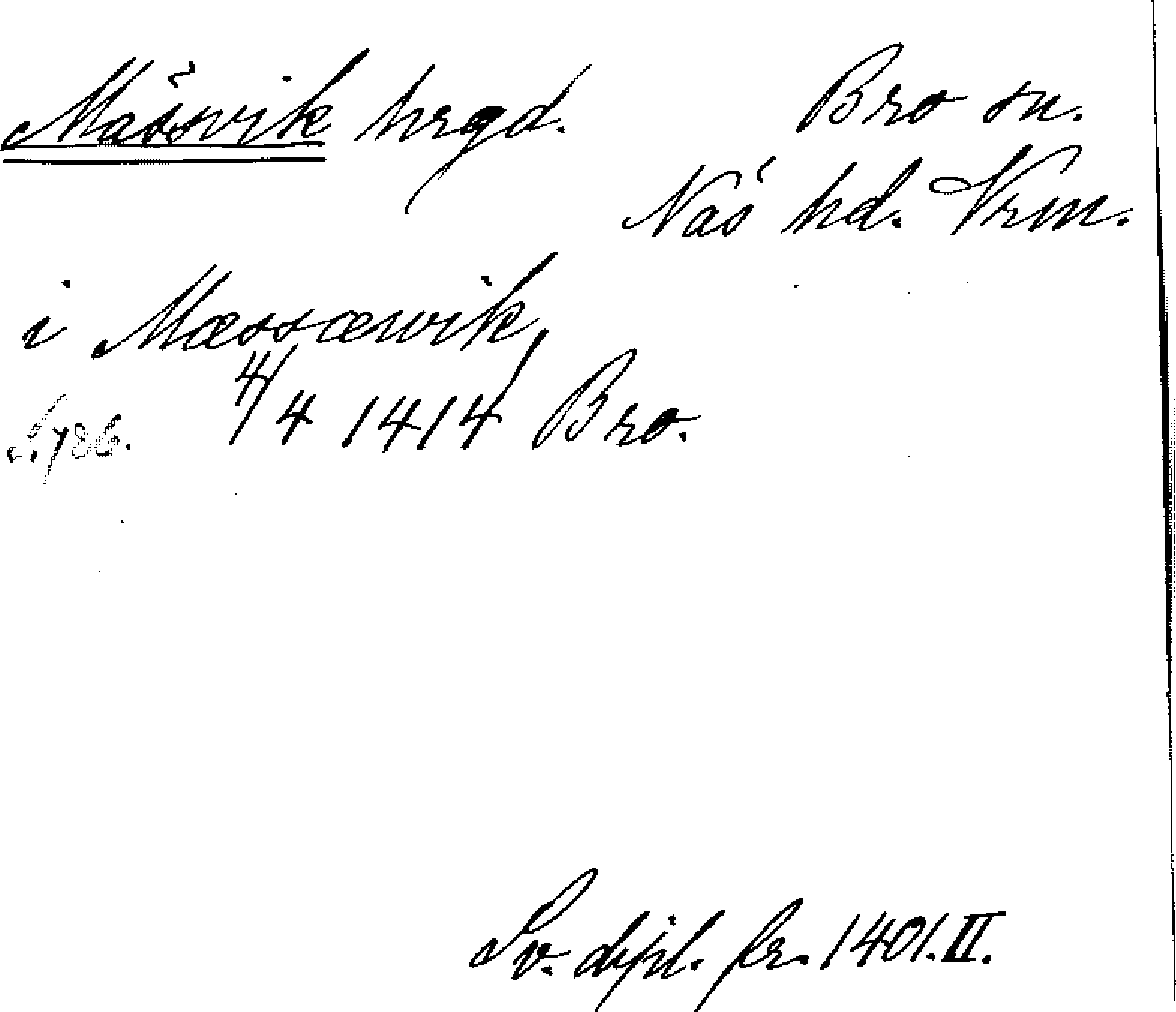 Mässvik hrgd. Bro sn.
Näs hd. Vrm.
i Mæssæwik,
4/4 1414 Bro.
S. 786.
Sv. dipl. fr. 1401. II.